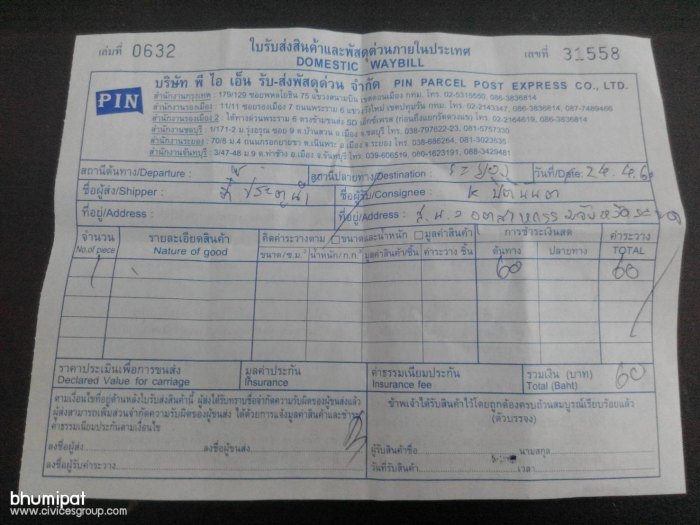 เล่มที่ 0632
ใบรับส่งสินค้าและพัสดุด่วนภายในประเทศ
DOMESTIC WAYBILL
เลขที่ 31558
PIN
บริษัท พี ไอ เอ็น รับ-ส่งพัสดุด่วน จำกัด PIN PARCEL POST EXPRESS CO., LTD.
สำนักงานกรุงเทพ : 179/129 ซอยพหลโยธิน 75 แขวงสนามบิน เขตดอนเมือง กทม. โทร. 02-5315550, 086-3836814
สำนักงานรองเมือง : 11/11 ซอยรองเมือง 7 ถนนพระราม 6 แขวงรองเมือง เขตปทุมวัน กทม. โทร. 02-2143347, 086-3836816, 087-7489466
สำนักงานรองเมือง 2 : ใต้ทางด่วนพระราม 6 ตรงข้ามขนส่ง SD เอ็กซ์เพรส (ก่อนถึงแยกรัดดวงแข) โทร. 02-2164619, 086-3836814
สำนักงานชลบุรี : 1/171-2 ม.รุ่งอรุณ ซอย 9 ต.บ้านสวน อ.เมือง จ.ชลบุรี โทร. 038-797622-23, 081-5757330
สำนักงานระยอง : 70/8 ม.4 ถนนกรอกยายชา ต.เนินพระ อ.เมือง จ.ระยอง โทร. 038-685264, 081-3023635
สำนักงานจันทบุรี : 3/47-48 ม.9 ต.ท่าช้าง อ.เมือง จ.จันทบุรี โทร. 039-606519, 086-1623191, 088-3429481
สถานีต้นทาง/Departure :
สถานีปลายทาง/Destination : ระยอง
วันที่/Date: 24.4.6
ชื่อผู้ส่ง/Shipper : พี่ ประตูน้ำ
ชื่อผู้รับ/Consignee : K
ที่อยู่/Address :
ที่อยู่/Address :
จำนวน
No.of piece
รายละเอียดสินค้า
Nature of good
คิดค่าระวางตาม ขนาดและน้ำหนัก มูลค่าสินค้า
ขนาด/ซ.ม.³ น้ำหนัก/ก.ก. มูลค่าสินค้า/ชิ้น ค่าระวาง ชิ้น
การชำระเงินสด
ต้นทาง ปลายทาง
ค่าระวาง
TOTAL
1 60 60
ราคาประเมินเพื่อการขนส่ง
Declared Value for carriage
มูลค่าประกัน
Insurance
ค่าธรรมเนียมประกัน
Insurance fee
รวมเงิน (บาท)
Total (Baht)
60
ตามเงื่อนไขที่อยู่ด้านหลังใบรับส่งสินค้านี้ ผู้ส่งได้รับทราบข้อจำกัดความรับผิดของผู้ขนส่งแล้ว
ผู้ส่งสามารถเพิ่มส่วนจำกัดความรับผิดของผู้ขนส่ง ได้ด้วยการแจ้งมูลค่าสินค้าและชำระ
ค่าธรรมเนียมประกันตามเงื่อนไข
ลงชื่อผู้ส่ง ลงชื่อผู้ขนส่ง
ลงชื่อผู้รับค่าระวาง
ข้าพเจ้าได้รับสินค้าไว้โดยถูกต้องครบถ้วนสมบูรณ์เรียบร้อยแล้ว
(ตัวบรรจง)
ผู้รับสินค้าชื่อ นามสกุล
วันที่รับสินค้า เวลา
bhumipat
www.civicesgroup.com